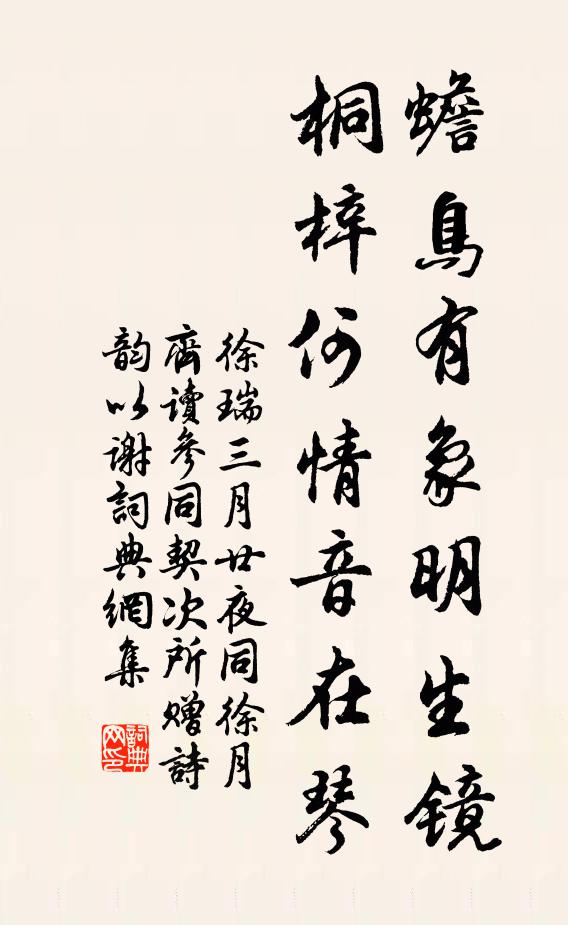 蟾烏有象明生鏡
桐梓何情音在琴
徐瑞三月廿夜同徐月
齋讀參同契次所贈詩
韵以謝詞典網集
詞典
网印